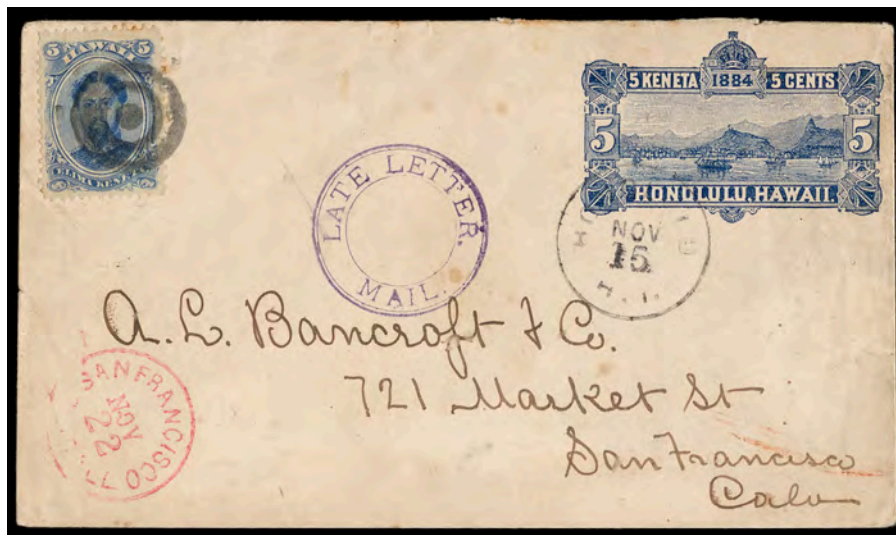 5 HAWAII 5
ELIMA KENETA
5 KENETA 1884 5 CENTS
5 5
HONOLULU, HAWAII.
LATE LETTER.
MAIL.
NOV
15
H. I.
A. L. Bancroft & Co.
721 Market St
San Francisco
Cala
SAN FRANCISCO
NOV
22